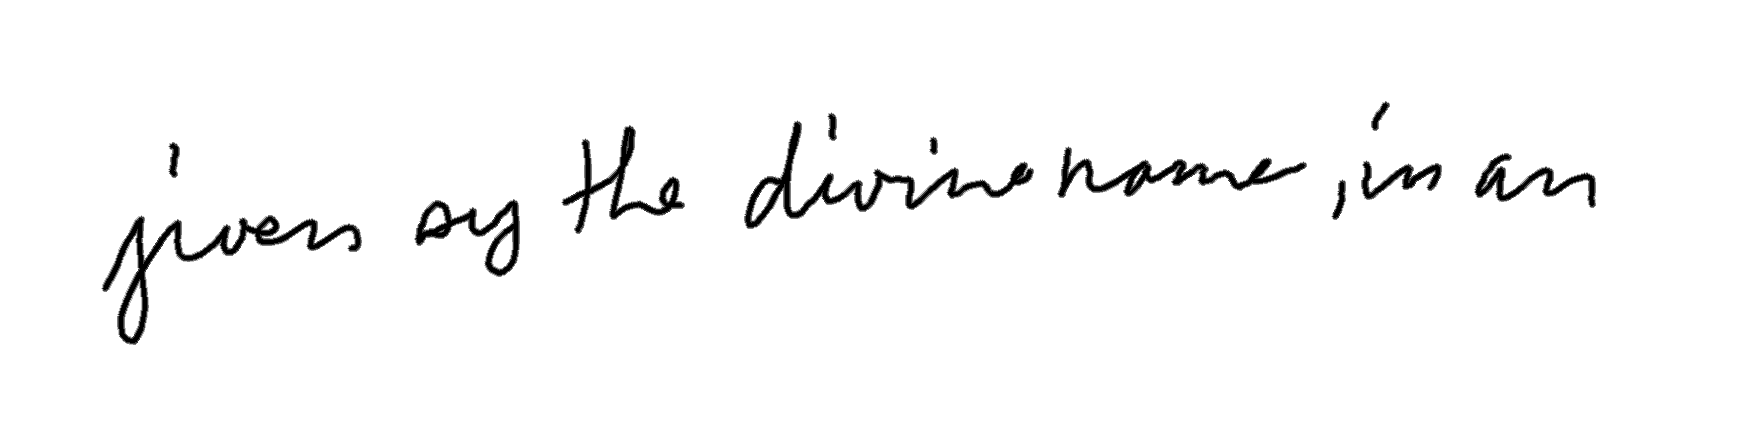 given by the divine name, in an